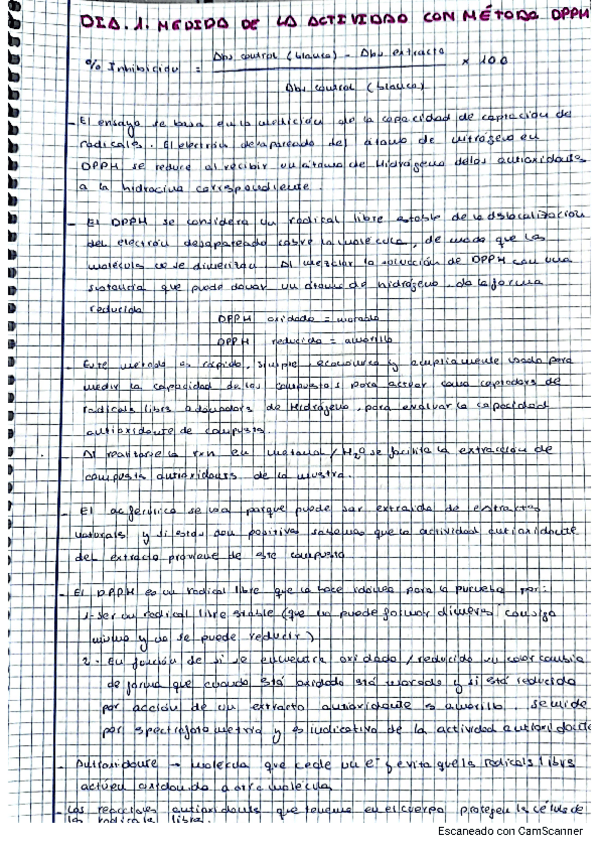 DIA. 1. MEDIDA DE LA ACTIVIDAD CON MÉTODO DPPH
% Inhibición = Abs control (blanco) - Abs extracto × 100
Abs control (blanco)
- El ensayo se basa en la medición de la capacidad de captación de
radicales. El electrón desapareado del átomo de nitrógeno en
DPPH se reduce al recibir un átomo de Hidrógeno de los antioxidantes
a la hidracina correspondiente.
- El DPPH se considera un radical libre estable de la dslocalización
del electrón desapareado sobre la molécula, de modo que las
molécula no se dimerizan. Al mezclar la solución de DPPH con una
sustancia que puede donar un átomo de hidrógeno, da la forma
reducida
DPPH oxidado = morado
DPPH reducido = amarillo
- Este método es rápido, simple económico y ampliamente usado para
medir la capacidad de los compuestos para actuar como captadors de
radicals librs o donadors de Hidrógeno, para evaluar la capacidad
antioxidante de compusto.
- Al realizarse la rxn en metanol/H2O se facilita la extracción de
compusts antioxidants de la muestra.
- El ac ferúlico se usa porque puede ser extraido de extractos
naturals y si estos son positivos sabemos que la actividad antioxidante
del extracto proviene de este compusto
- El DPPH es un radical libre que lo hace idóneo para la prueba por:
1- Ser un radical libre stable (que no puede formar dimeros consigo
mismo y no se puede reducir)
2. En función de si se encuentra oxidado/reducido su color cambia
de forma que cuando está oxidado stá morado y si está reducido
por acción de un extracto antioxidante s amarillo. Se mide
por spectrofotometria y es indicativo de la actividad antioxidante
- Antioxidante → molécula que cede un e- y evita que ls radicals librs
actuen oxidando a otra molécula
- Las reacciones antioxidants que tenemos en el cuerpo protegen la células de
los radicals libre.
Escaneado con CamScanner